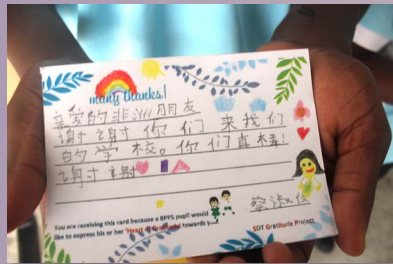 many thanks!
亲爱的非洲朋友
谢谢你们来我们
的学校。你们真棒!
谢谢
You are receiving this card because a BPPS pupil would
like to express his or her "Heart of Gratitude" towards you!
蔡淑
SDT Gratitude Project